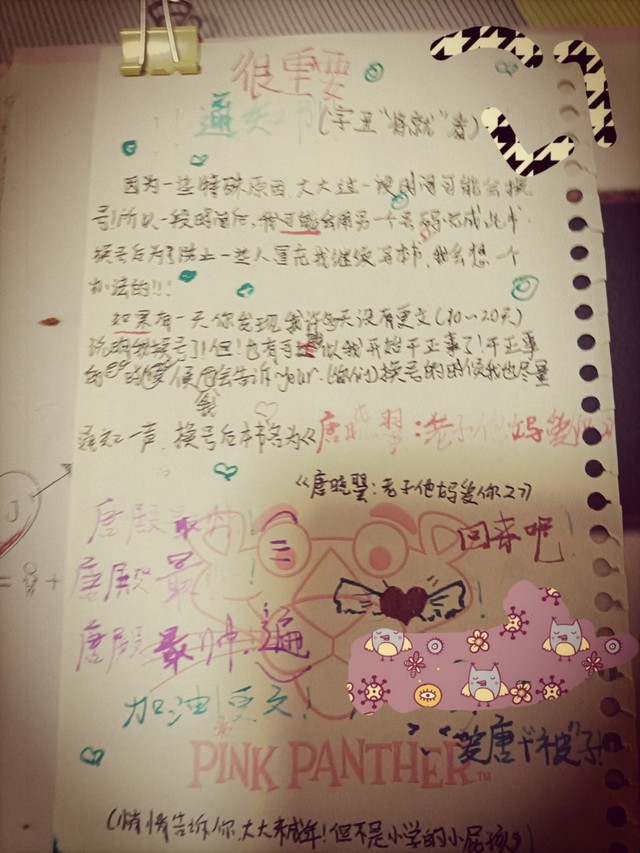 很重要
通知 (字丑"将就"看)
因为一些特殊原因,大大这一段时间可能会换
号!所以一段时间后,我可能会用另一个号码完成此书
换号后为了防止一些人冒充我继续写本书,我会想一个
办法的!!!
如果有一天你发现我许多天没有更文(10~20天)
说明我换号了!但!也有可能似我开始干正事了!干正事
的时候我会告诉your.(你们)换号的时候我也尽量
通知一声,换号后本书名为《唐晓翼:老子他妈爱你
《唐晓翼:老子他妈爱你2》
唐殿最帅! 回来吧!
唐殿最
唐殿最帅.遍
加油!更文!
爱唐"被"子!
PINK PANTHER™
(悄悄告诉你,大大未成年!但不是小学的小屁孩)